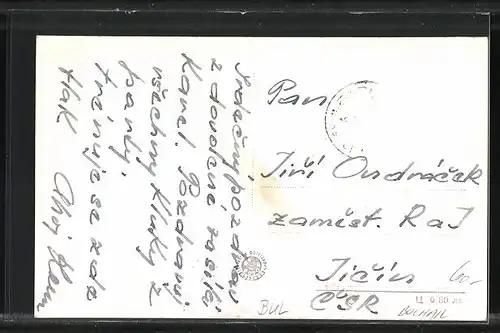 Srdečný pozdrav
z dovolené zasílá
Karel. Pozdravuj
všechny kluky z
party.
trénuje se zda
tak
Ahoj
Pan
Jiří Ondráček
zaměst. RaJ
Jičín
ČSR
BUL